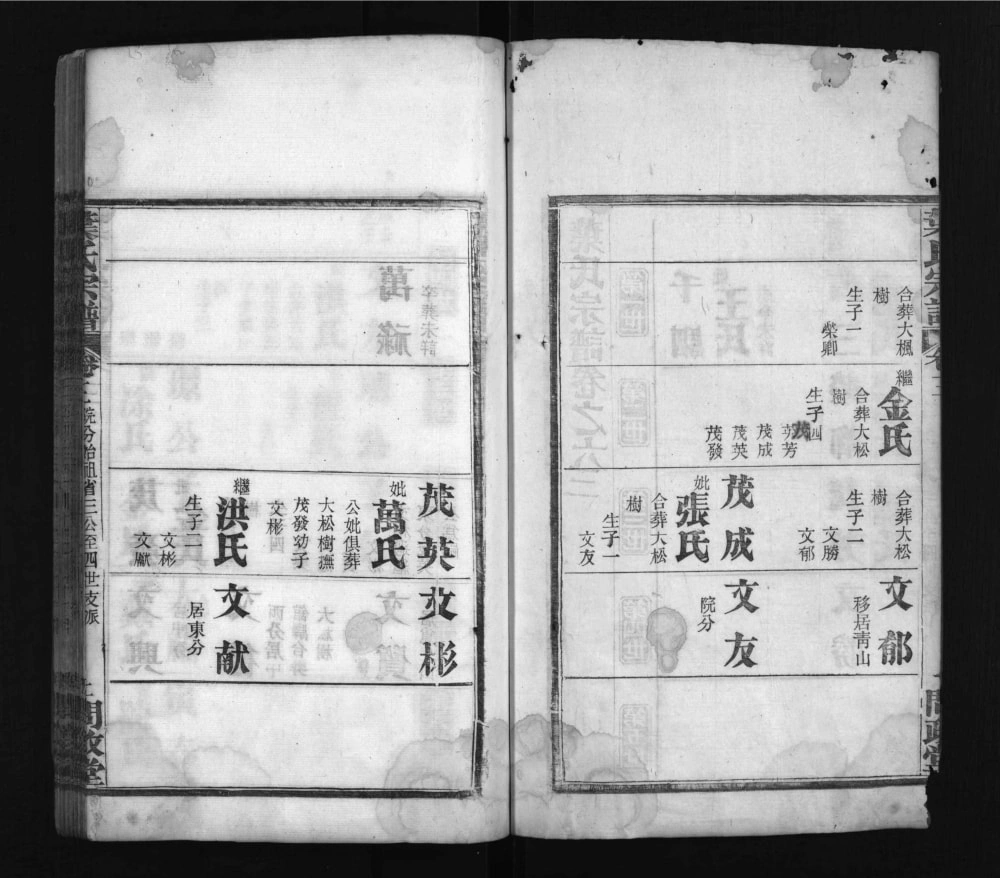 合葬大楓
樹
生子一
榮卿
繼
金氏
合葬大松
樹
生子四
茂芳
茂成
茂英
茂發
合葬大松
樹
生子二
文勝
文郁
茂成
妣
張氏
合葬大松
樹
生子一
文友
文郁
移居靑山
文友
院分
萬祿
茂英
妣
萬氏
公妣俱葬
大松樹撫
茂發幼子
文彬
繼
洪氏
生子二
文彬
文獻
文彬
文献
居東分
葉氏宗譜
卷之二
院分始祖省三公至四世支派
問政堂